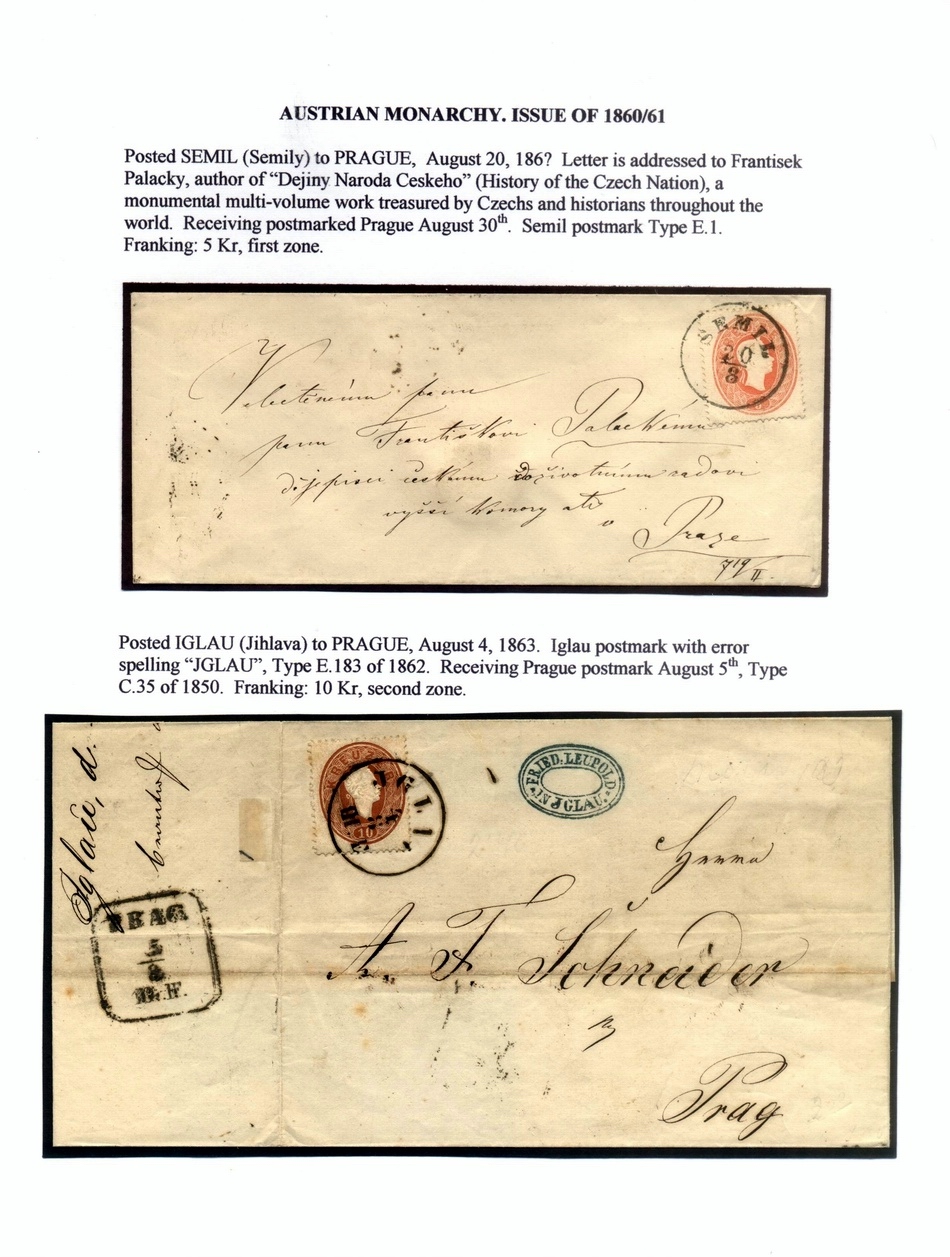 AUSTRIAN MONARCHY. ISSUE OF 1860/61
Posted SEMIL (Semily) to PRAGUE, August 20, 186? Letter is addressed to Frantisek
Palacky, author of “Dejiny Naroda Ceskeho” (History of the Czech Nation), a
monumental multi-volume work treasured by Czechs and historians throughout the
world. Receiving postmarked Prague August 30th. Semil postmark Type E.1.
Franking: 5 Kr, first zone.
SEMIL
20
8
Velectěnému panu
panu Františkovi Palackému
dějepisci českému doživotnímu radovi
vyšší komory atd
v Praze
719/II
Posted IGLAU (Jihlava) to PRAGUE, August 4, 1863. Iglau postmark with error
spelling “JGLAU”, Type E.183 of 1862. Receiving Prague postmark August 5th, Type
C.35 of 1850. Franking: 10 Kr, second zone.
Iglau, d.
KREUZER
10
FRIED. LEUPOLD
IN JGLAU.
Herrn
A. F. Schneider
Prag
PRAG
5
8
III. F.